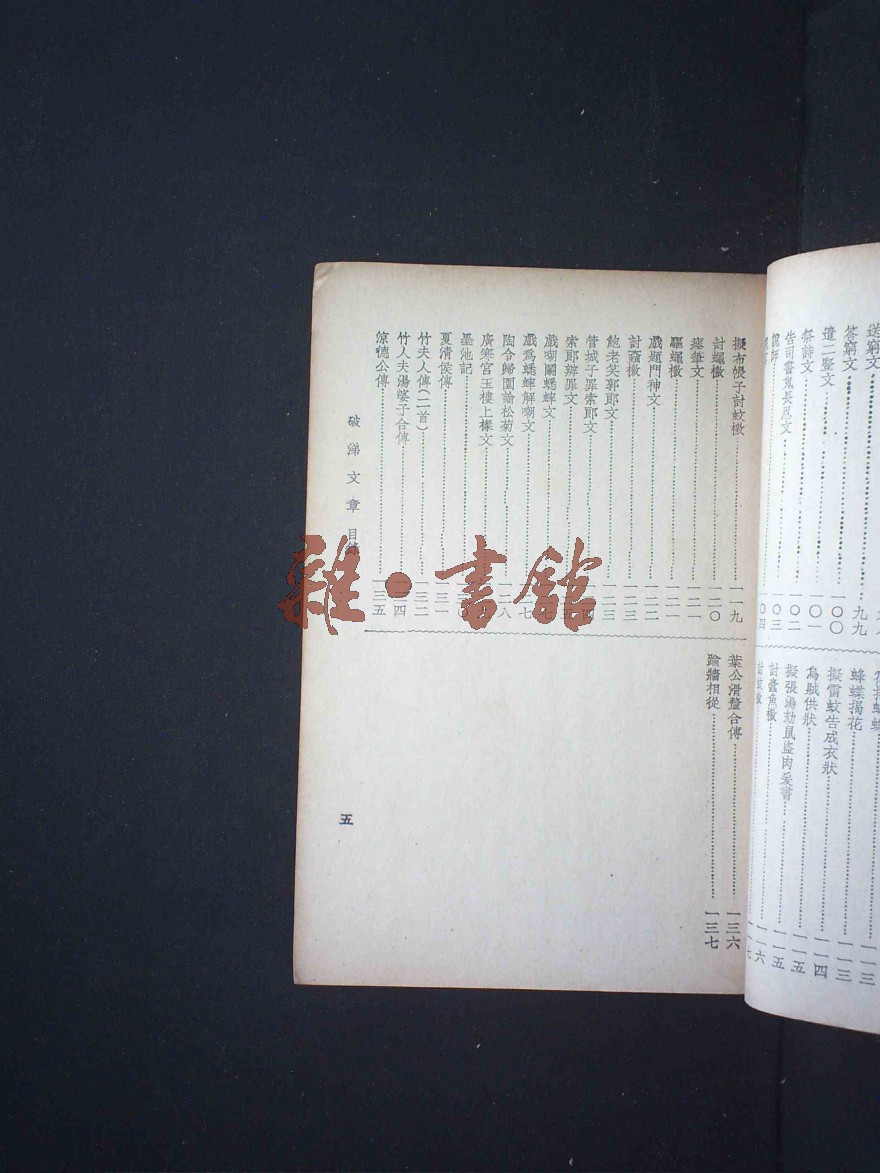 送窮文
答窮文 九九
遣二豎文 一〇〇
祭詩文 一〇一
告司書鬼長恩文 一〇二
一〇三
〇四
一一三
蜂蝶揭花 一一三
擬雷蚊告成衣狀 一一四
為賊供狀 一一五
擬張湯劾鼠盜肉爰書 一一五
討蠹魚檄 一一六
擬布帳子討蚊檄 一一九
討蠅檄 一二〇
瘞筆文 一二一
驅蠅檄 一二一
戲題門神文 一二二
討蝨檄 一二三
鮑老笑郭郎文 一二三
管城子罪索郎文
索郎辨罪文
戲嘲鬭蟋蟀文
戲為蟋蟀解嘲文
陶令歸園諭松菊文
廣寒宮玉樓上樑文
墨池記
夏清侯傳 一三一
竹夫人傳(二首) 一三二
竹夫人湯婆子合傳
涼德公傳 一三五
葉公滑釐合傳 一三六
踰牆相從 一三七
破涕文章 目錄
五
雜·書館